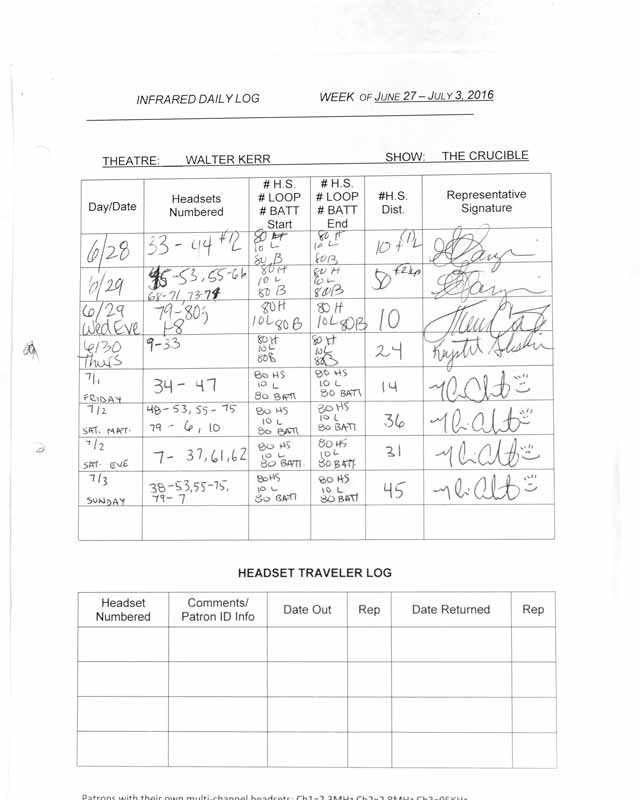 INFRARED DAILY LOG WEEK OF JUNE 27 – JULY 3, 2016
THEATRE: WALTER KERR SHOW: THE CRUCIBLE
Day/Date Headsets Numbered # H.S. # LOOP # BATT Start # H.S. # LOOP # BATT End #H.S. Dist. Representative Signature
6/28 33 - 44 #12 80 H 10 L 80 B 80 H 10 L 80 B 10
6/29 -53, 55-66 80 H 10 L 80 B 80 H 10 L 80 B
68-71, 73-74
6/29 Wed Eve 79-80; 1-8 80H 10L 80B 80 H 10L 80B 10
6/30 Thurs 9-33 80 H 10L 80B 80 H 10L 80B 24
7/1 FRIDAY 34 - 47 80 HS 10 L 80 BATT 80 HS 10 L 80 BATT 14
7/2 SAT. MAT. 48-53, 55-75 79 - 6, 10 80 HS 10 L 80 BATT 80 HS 10 L 80 BATT 36
7/2 SAT. EVE 7- 37, 61, 62 80 HS 10 L 80 BATT. 80 HS 10 L 80 BATT. 31
7/3 SUNDAY 38-53, 55-75, 79-7 80 HS 10 L 80 BATT 80 HS 10 L 80 BATT 45
HEADSET TRAVELER LOG
Headset Numbered Comments/ Patron ID Info Date Out Rep Date Returned Rep
Patrons with their own multi-channel headsets: Ch1=2.3MHz Ch2=2.8MHz Ch3=95KHz